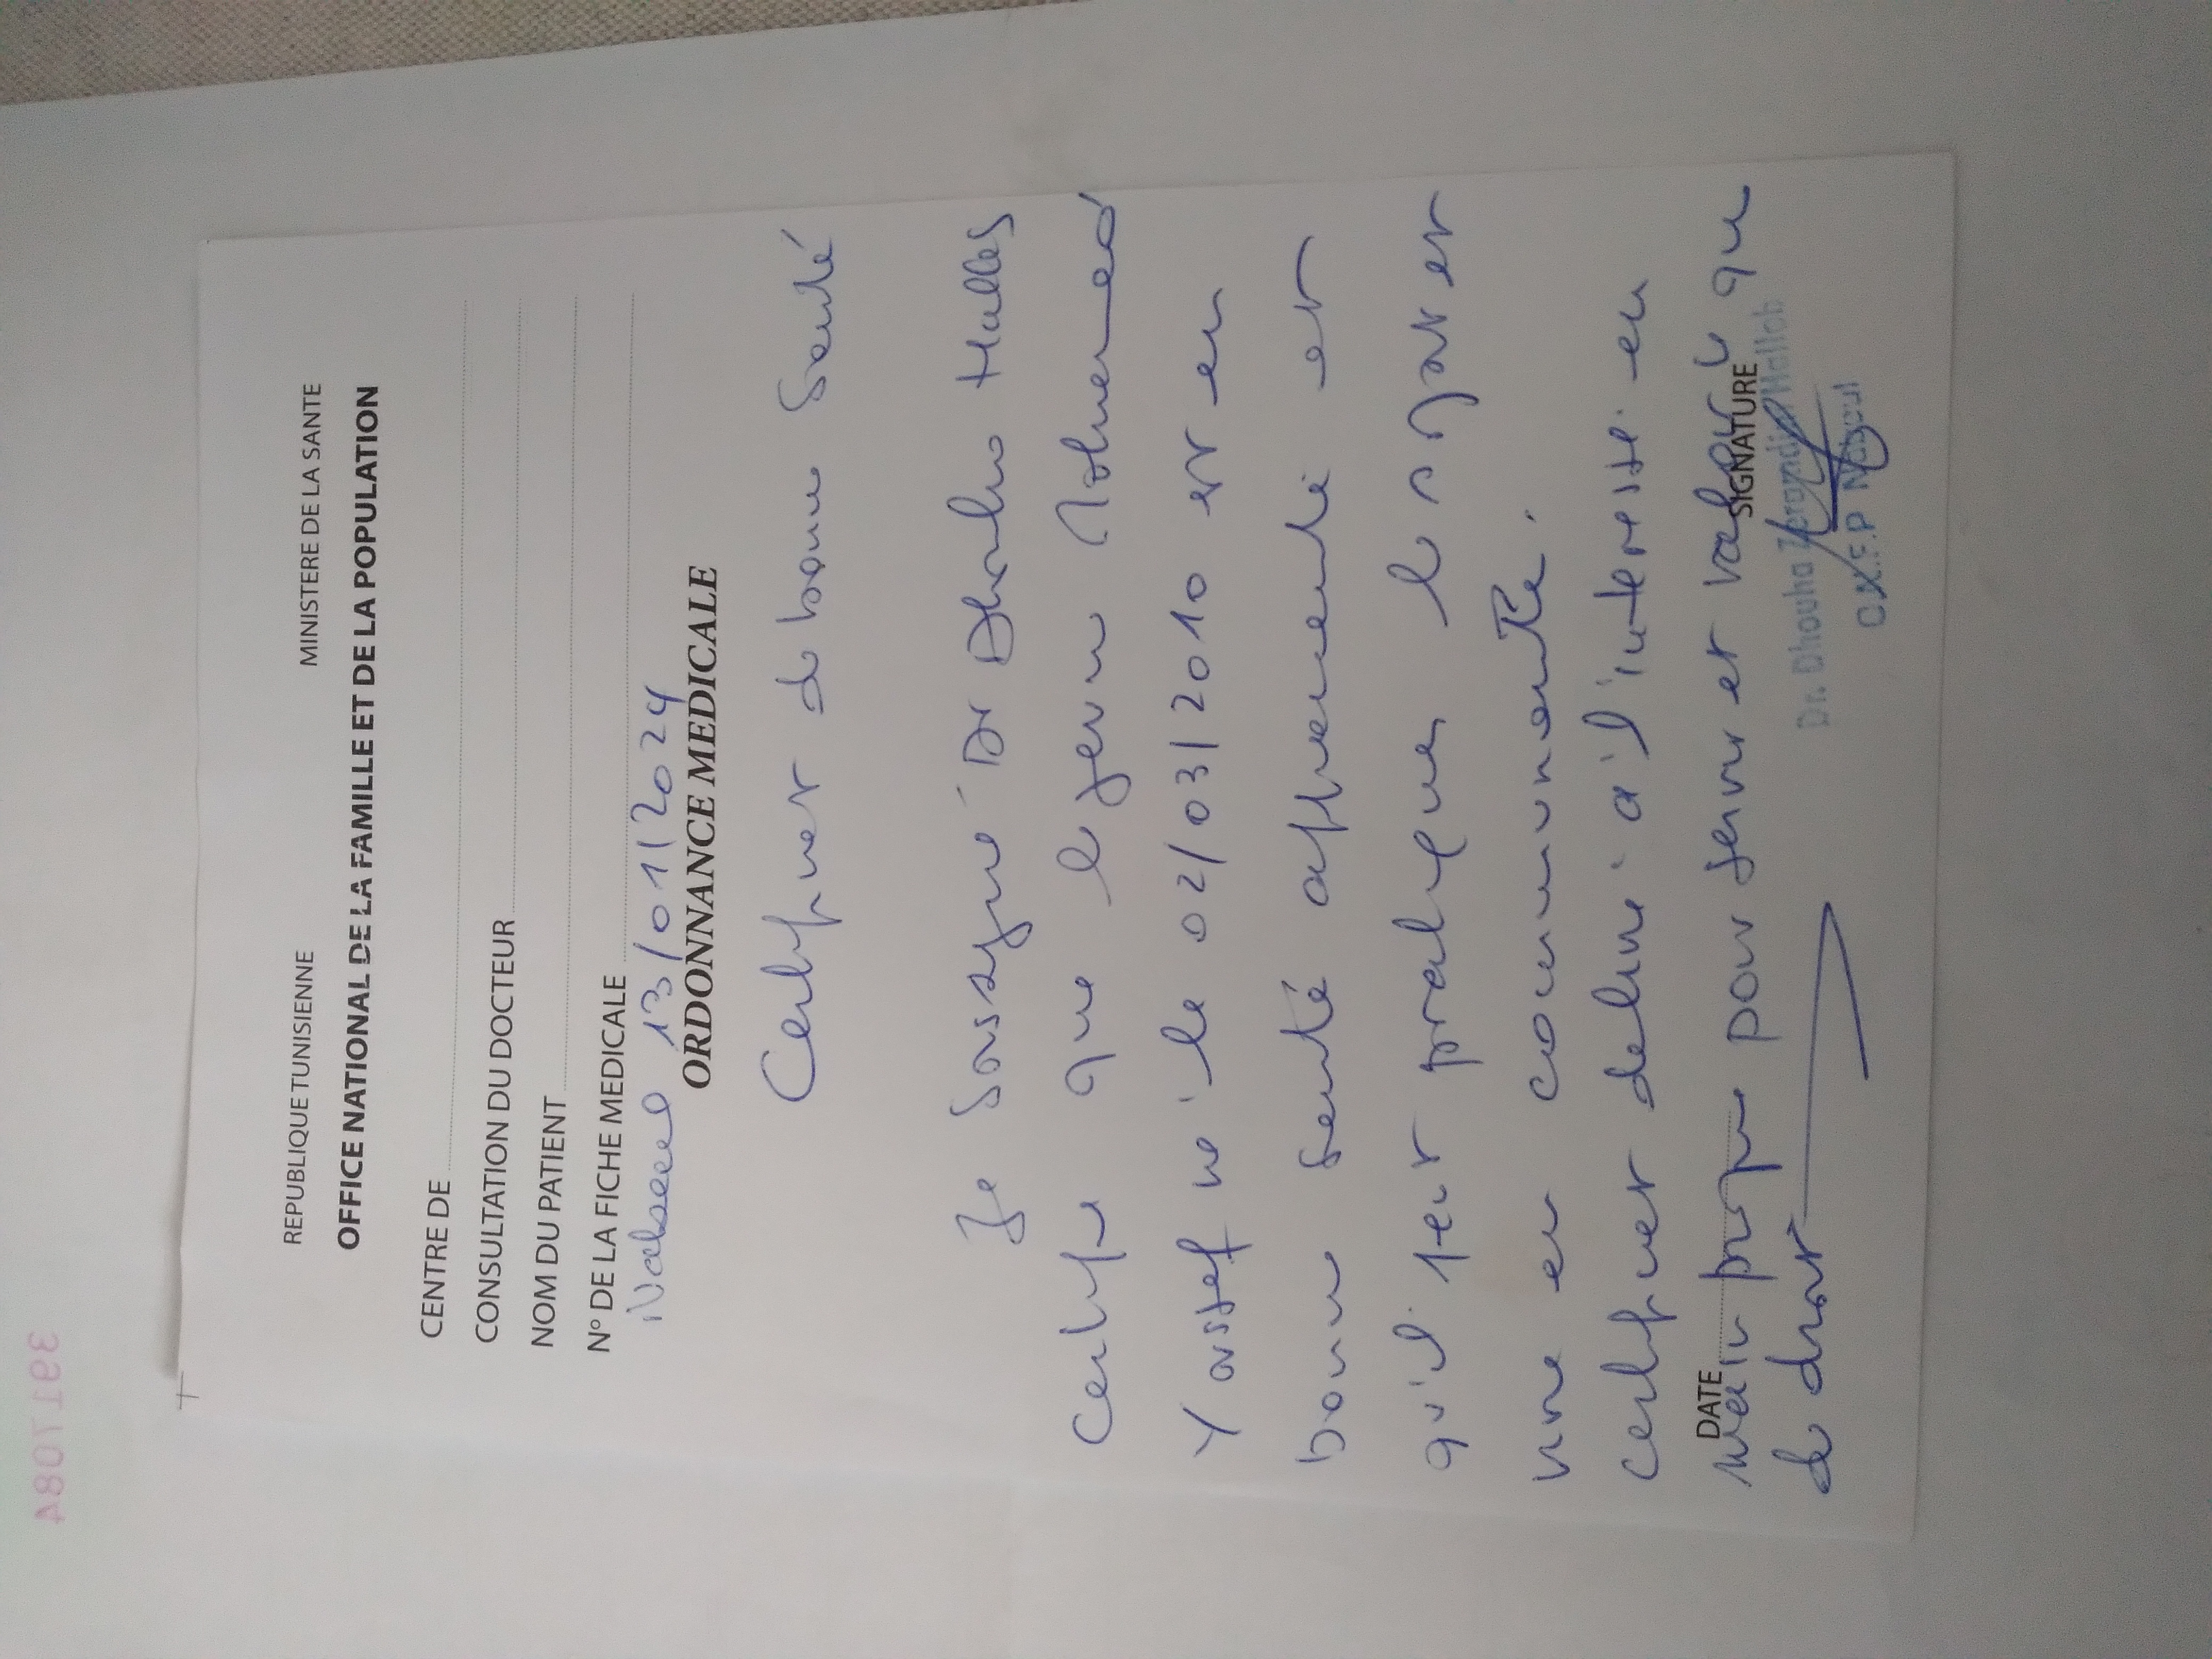 REPUBLIQUE TUNISIENNE MINISTERE DE LA SANTE
OFFICE NATIONAL DE LA FAMILLE ET DE LA POPULATION
CENTRE DE
CONSULTATION DU DOCTEUR
NOM DU PATIENT
N° DE LA FICHE MEDICALE
Nabeul 13/01/2024
ORDONNANCE MEDICALE
Certificat de bonne Santé
Je Soussigné Dr Dhouha Hallab
Certifie que le jeune Mohamed
Youssef né le 02/03/2010 est en
bonne santé apparente et
qu'il peut pratiquer le sport et
vivre en communauté.
Certificat délivré à l'intéressé en
main propre pour servir et valoir ce qu
de droit
DATE
SIGNATURE
Dr. Dhouha Hallab
O.N.F.P Nabeul
3917084